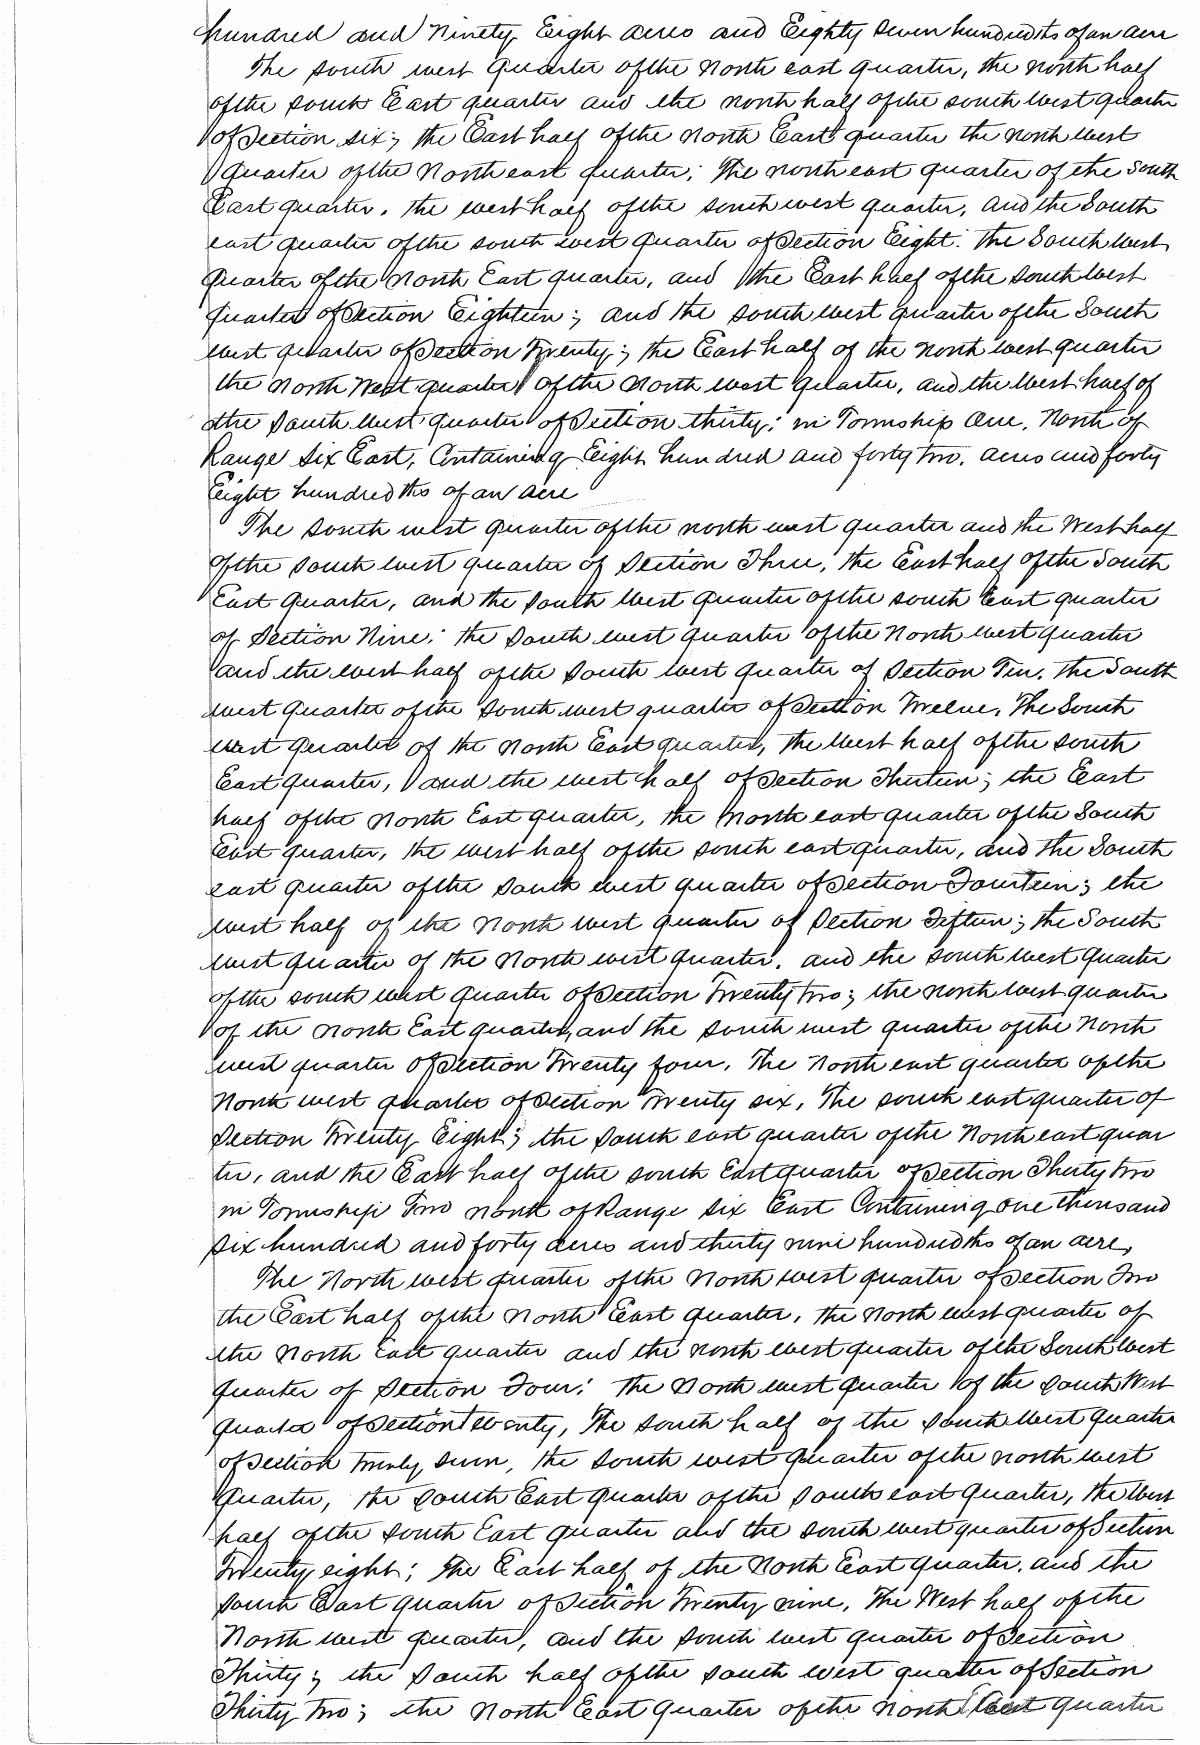 hundred and Ninety Eight acres and Eighty Seven hundredths of an acre
The south west quarter of the North east quarter, the north half
of the south East quarter and the north half of the south west quarter
of Section six; the East half of the North East quarter the north west
quarter of the North east quarter; The north east quarter of the South
East quarter. the west half of the south west quarter, and the South
east quarter of the south west quarter of Section Eight: the South West
quarter of the North East quarter, and the East half of the South West
quarter of Section Eighteen; and the south west quarter of the South
west quarter of Section Twenty; the East half of the North west quarter
the North West quarter of the North west quarter, and the West half of
the South west quarter of Section thirty; in Township One. North of
Range Six East, Containing Eight hundred and forty two. acres and forty
Eight hundredths of an acre
The south west quarter of the north west quarter and the West half
of the South west quarter of Section Three, the East half of the South
East quarter, and the South West quarter of the south East quarter
of Section Nine: the South west quarter of the North west quarter
and the west half of the South west quarter of Section Ten. the South
west quarter of the South west quarter of Section Twelve. The South
west quarter of the North East quarter, the West half of the south
East quarter, and the west half of Section Thirteen; the East
half of the North East quarter, the North east quarter of the South
East quarter, the west half of the south east quarter, and the South
east quarter of the South west quarter of Section Fourteen; the
west half of the North west quarter of Section Fifteen; the South
west quarter of the North west quarter. and the south west quarter
of the south west quarter of Section Twenty two; the north west quarter
of the North East quarter, and the south west quarter of the North
west quarter of Section Twenty four. The North east quarter of the
North west quarter of Section Twenty six. The south east quarter of
Section Twenty Eight; the South east quarter of the North east quar
ter, and the East half of the south East quarter of Section Thirty two
in Township Two north of Range Six East Containing One thousand
Six hundred and forty acres and thirty nine hundredths of an acre,
The North west quarter of the North west quarter of Section Two
the East half of the North East quarter, the North west quarter of
the North East quarter and the north west quarter of the South West
quarter of Section Four: the North west quarter of the South West
quarter of Section Twenty, The south half of the South West quarter
of Section Twenty Seven, the south west quarter of the north west
quarter, the South East quarter of the South east quarter, the West
half of the South East quarter and the south west quarter of Section
Twenty eight; the East half of the North East quarter. and the
South East quarter of Section Twenty nine, The West half of the
North west quarter, and the south west quarter of Section
Thirty; the South half of the south west quarter of Section
Thirty two; the North East quarter of the North East quarter